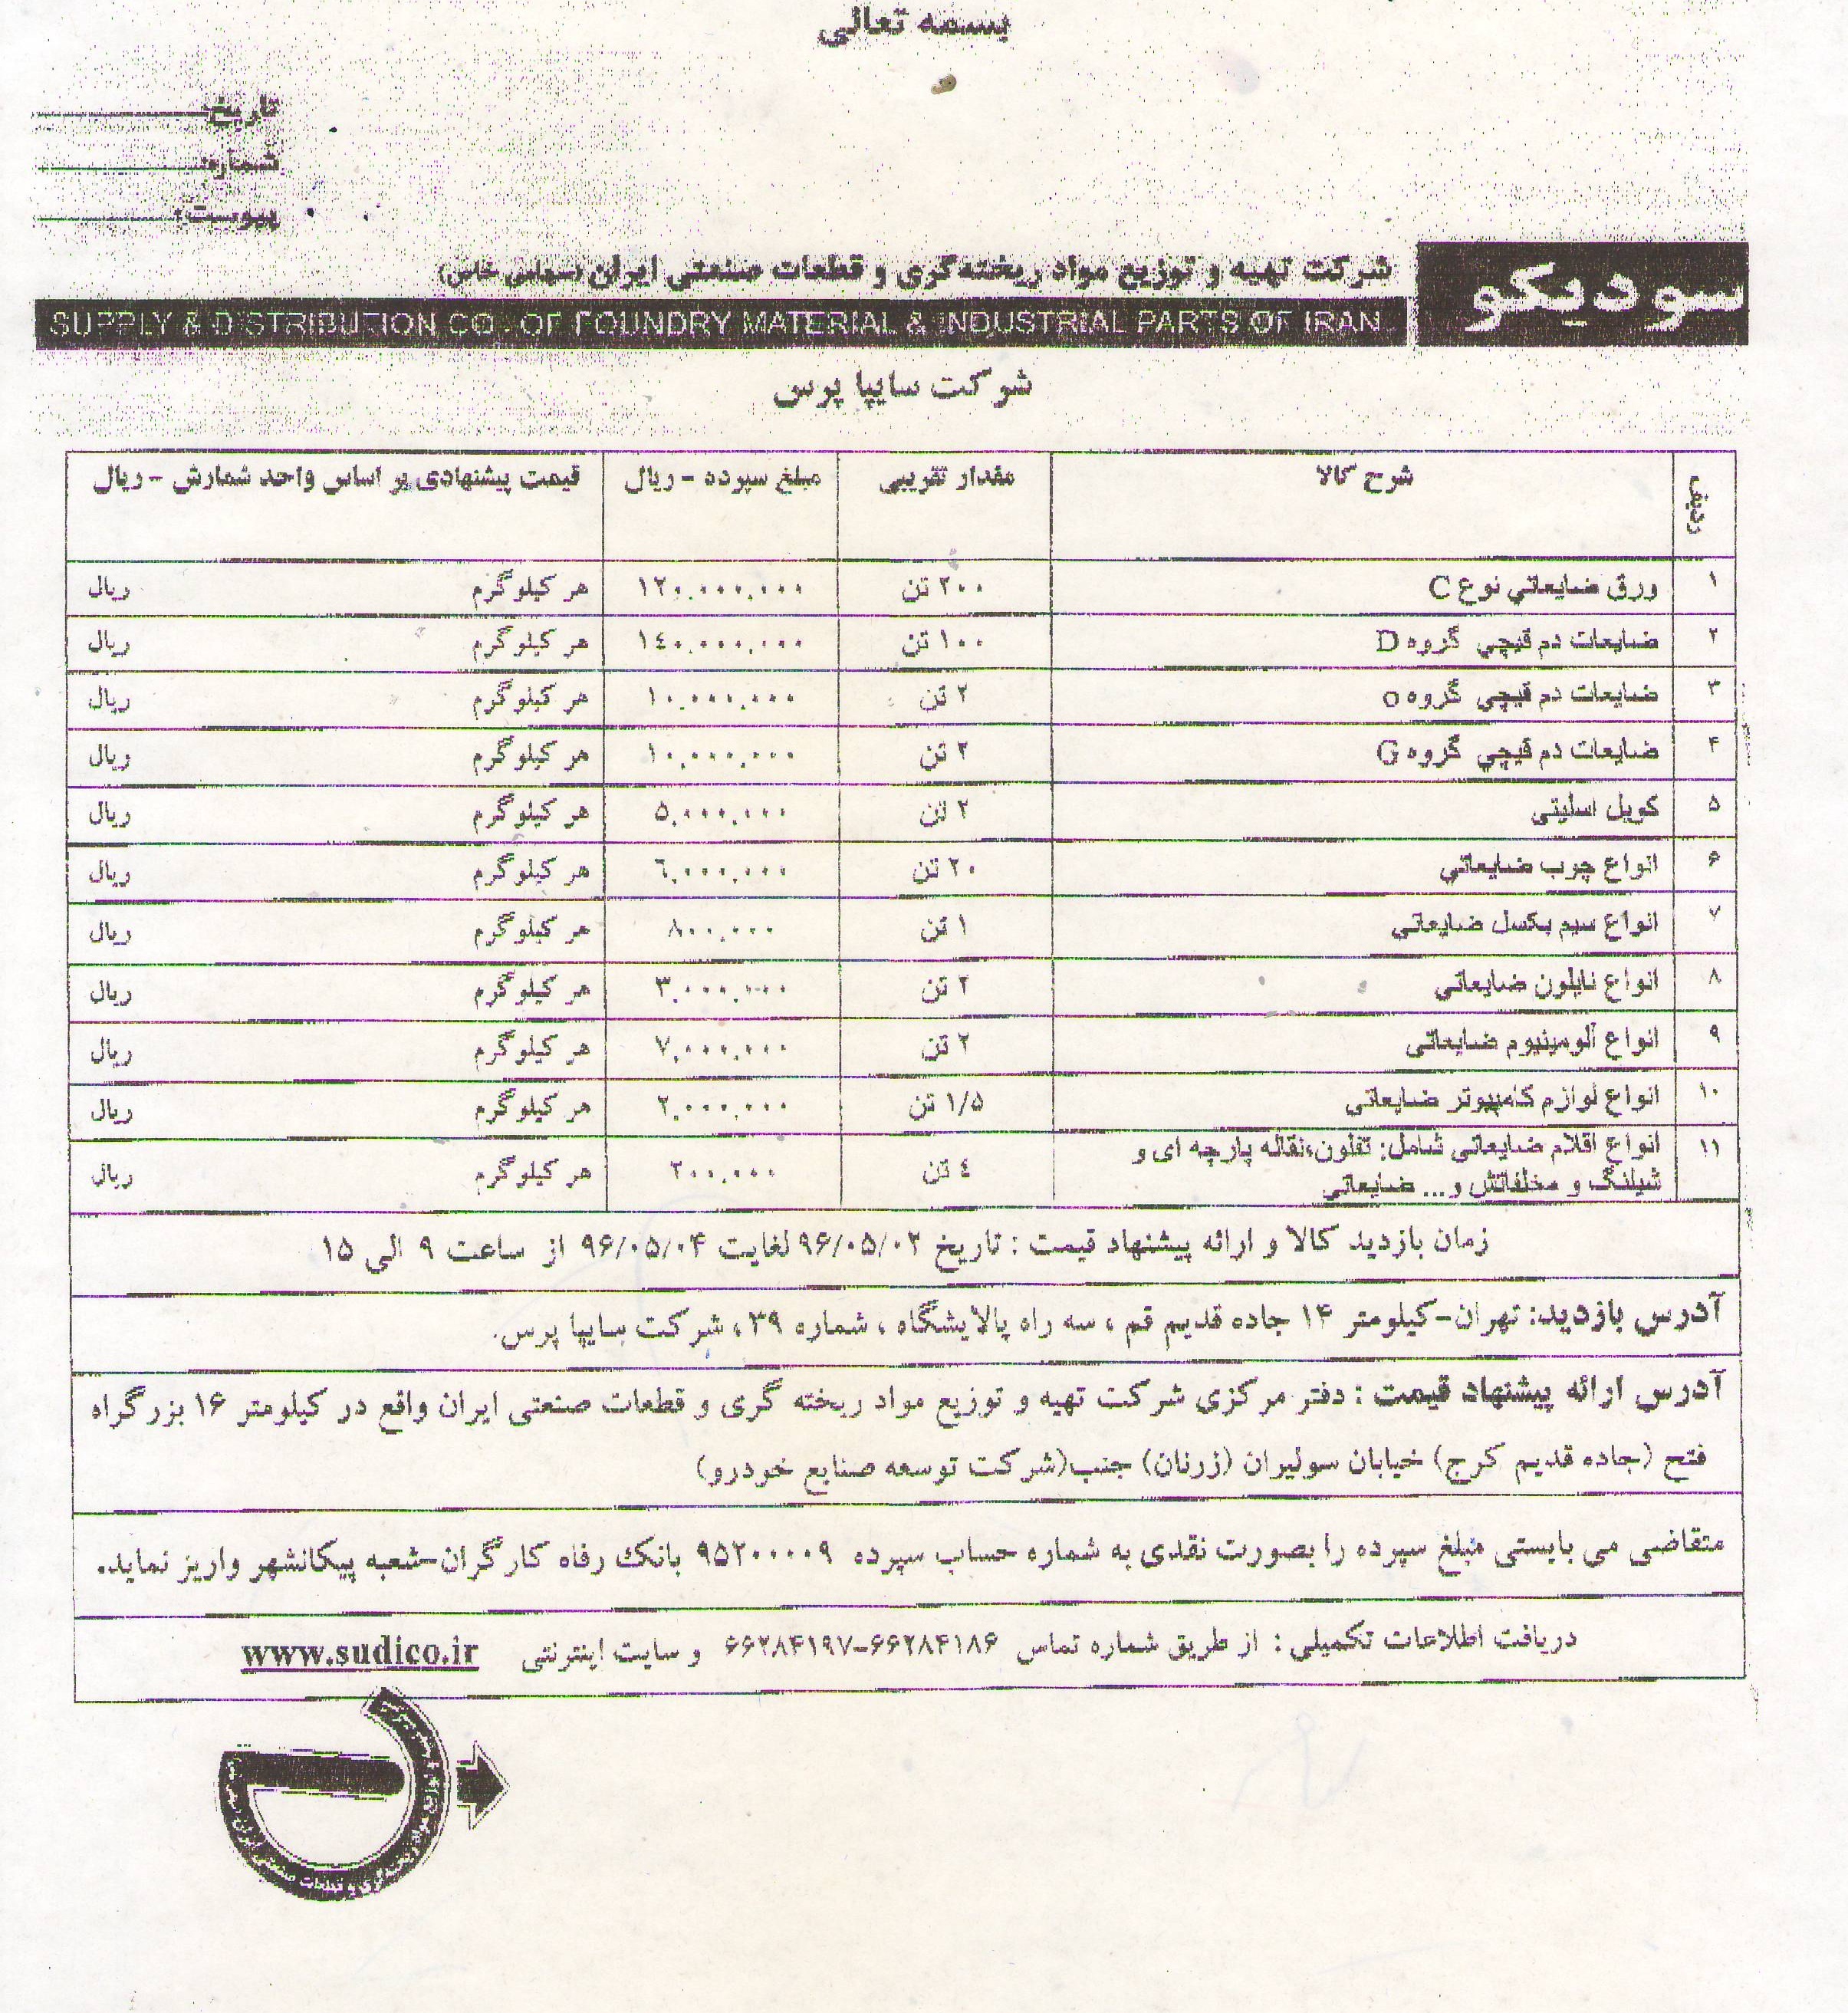 بسمه تعالی
تاریخ:
شماره:
پیوست:
سودیکو
شرکت تهیه و توزیع مواد ریخته‌گری و قطعات صنعتی ایران (سهامی خاص)
SUPPLY & DISTRIBUTION CO. OF FOUNDRY MATERIAL & INDUSTRIAL PARTS OF IRAN
شرکت سایپا پرس
ردیف شرح کالا مقدار تقریبی مبلغ سپرده - ریال قیمت پیشنهادی بر اساس واحد شمارش - ریال
۱ ورق ضایعاتی نوع C ۲۰۰ تن ۱۲۰.۰۰۰.۰۰۰ هر کیلوگرم ریال
۲ ضایعات دم قیچی گروه D ۱۰۰ تن ۱٤۰.۰۰۰.۰۰۰ هر کیلوگرم ریال
۳ ضایعات دم قیچی گروه o ۲ تن ۱۰.۰۰۰.۰۰۰ هر کیلوگرم ریال
۴ ضایعات دم قیچی گروه G ۲ تن ۱۰.۰۰۰.۰۰۰ هر کیلوگرم ریال
۵ کویل اسلیتی ۲ تن ۵.۰۰۰.۰۰۰ هر کیلوگرم ریال
۶ انواع چوب ضایعاتی ۲۰ تن ٦.۰۰۰.۰۰۰ هر کیلوگرم ریال
۷ انواع سیم بکسل ضایعاتی ۱ تن ۸۰۰.۰۰۰ هر کیلوگرم ریال
۸ انواع نایلون ضایعاتی ۲ تن ۳.۰۰۰.۰۰۰ هر کیلوگرم ریال
۹ انواع آلومینیوم ضایعاتی ۲ تن ۷.۰۰۰.۰۰۰ هر کیلوگرم ریال
۱۰ انواع لوازم کامپیوتر ضایعاتی ۱/۵ تن ۲.۰۰۰.۰۰۰ هر کیلوگرم ریال
۱۱ انواع اقلام ضایعاتی شامل: تفلون،نقاله پارچه ای و ٤ تن ۲۰۰.۰۰۰ هر کیلوگرم ریال
شیلنگ و مخلفاتش و... ضایعاتی
زمان بازدید کالا و ارائه پیشنهاد قیمت : تاریخ ۹۶/۰۵/۰۲ لغایت ۹۶/۰۵/۰۴ از ساعت ۹ الی ۱۵
آدرس بازدید: تهران-کیلومتر ۱۴ جاده قدیم قم ، سه راه پالایشگاه ، شماره ۳۹ ، شرکت سایپا پرس.
آدرس ارائه پیشنهاد قیمت : دفتر مرکزی شرکت تهیه و توزیع مواد ریخته گری و قطعات صنعتی ایران واقع در کیلومتر ۱۶ بزرگراه
فتح (جاده قدیم کرج) خیابان سولیران (زرنان) جنب(شرکت توسعه صنایع خودرو)
متقاضی می بایستی مبلغ سپرده را بصورت نقدی به شماره حساب سپرده ۹۵۲۰۰۰۰۹ بانک رفاه کارگران-شعبه پیکانشهر واریز نماید.
دریافت اطلاعات تکمیلی : از طریق شماره تماس ۶۶۲۸۴۱۸۶-۶۶۲۸۴۱۹۷ و سایت اینترنتی www.sudico.ir